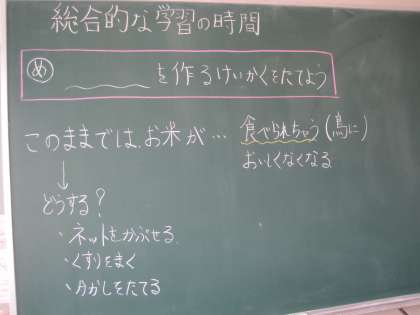 総合的な学習の時間
め ______を作るけいかくをたてよう
このままでは、お米が… 食べられちゃう(鳥に)
おいしくなくなる
↓
どうする?
・ネットをかぶせる
・くすりをまく
・かかしをたてる